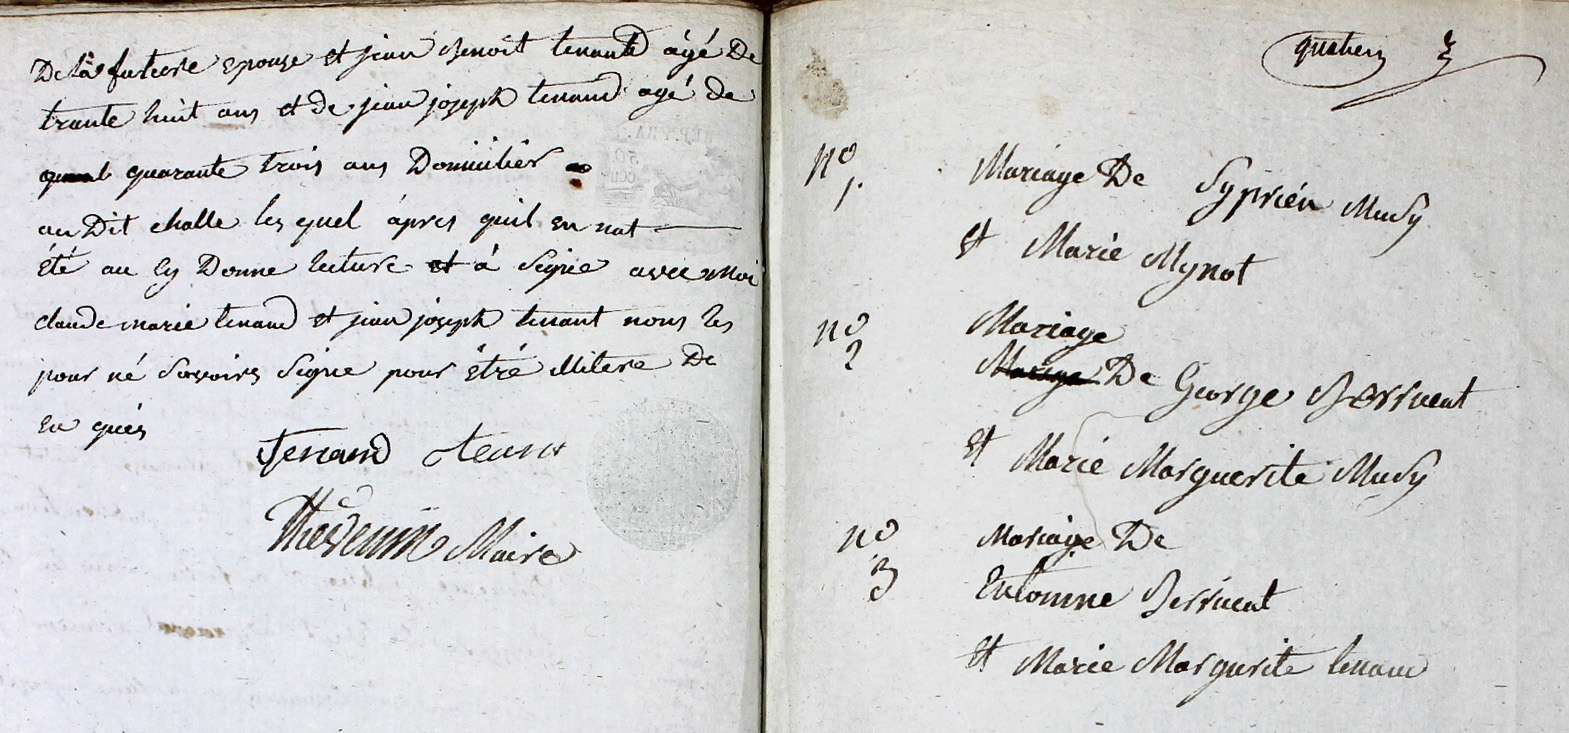 De la future epouse et jean Benoit tenand âgé De
trante huit ans et de jean joseph tenand agé de
quarante trois ans Domicilier
au Dit challe les quel âpres quil en nat
été au ey Donne lecture et â Signe avec Moi
claude marie tenand et jean joseph tenant nons les
pour né Savoirs Signe pour être Militere De
ce
Tenand
Maire
quatrieu
No 1. Mariage De Syprién Mudy
et Marie Mynot
no 2 Mariage
Mariage De George Berruent
et Marie Marguerite Mudy
no 3 Mariage De
Entoinne Berruent
et Marie Margurite tenand